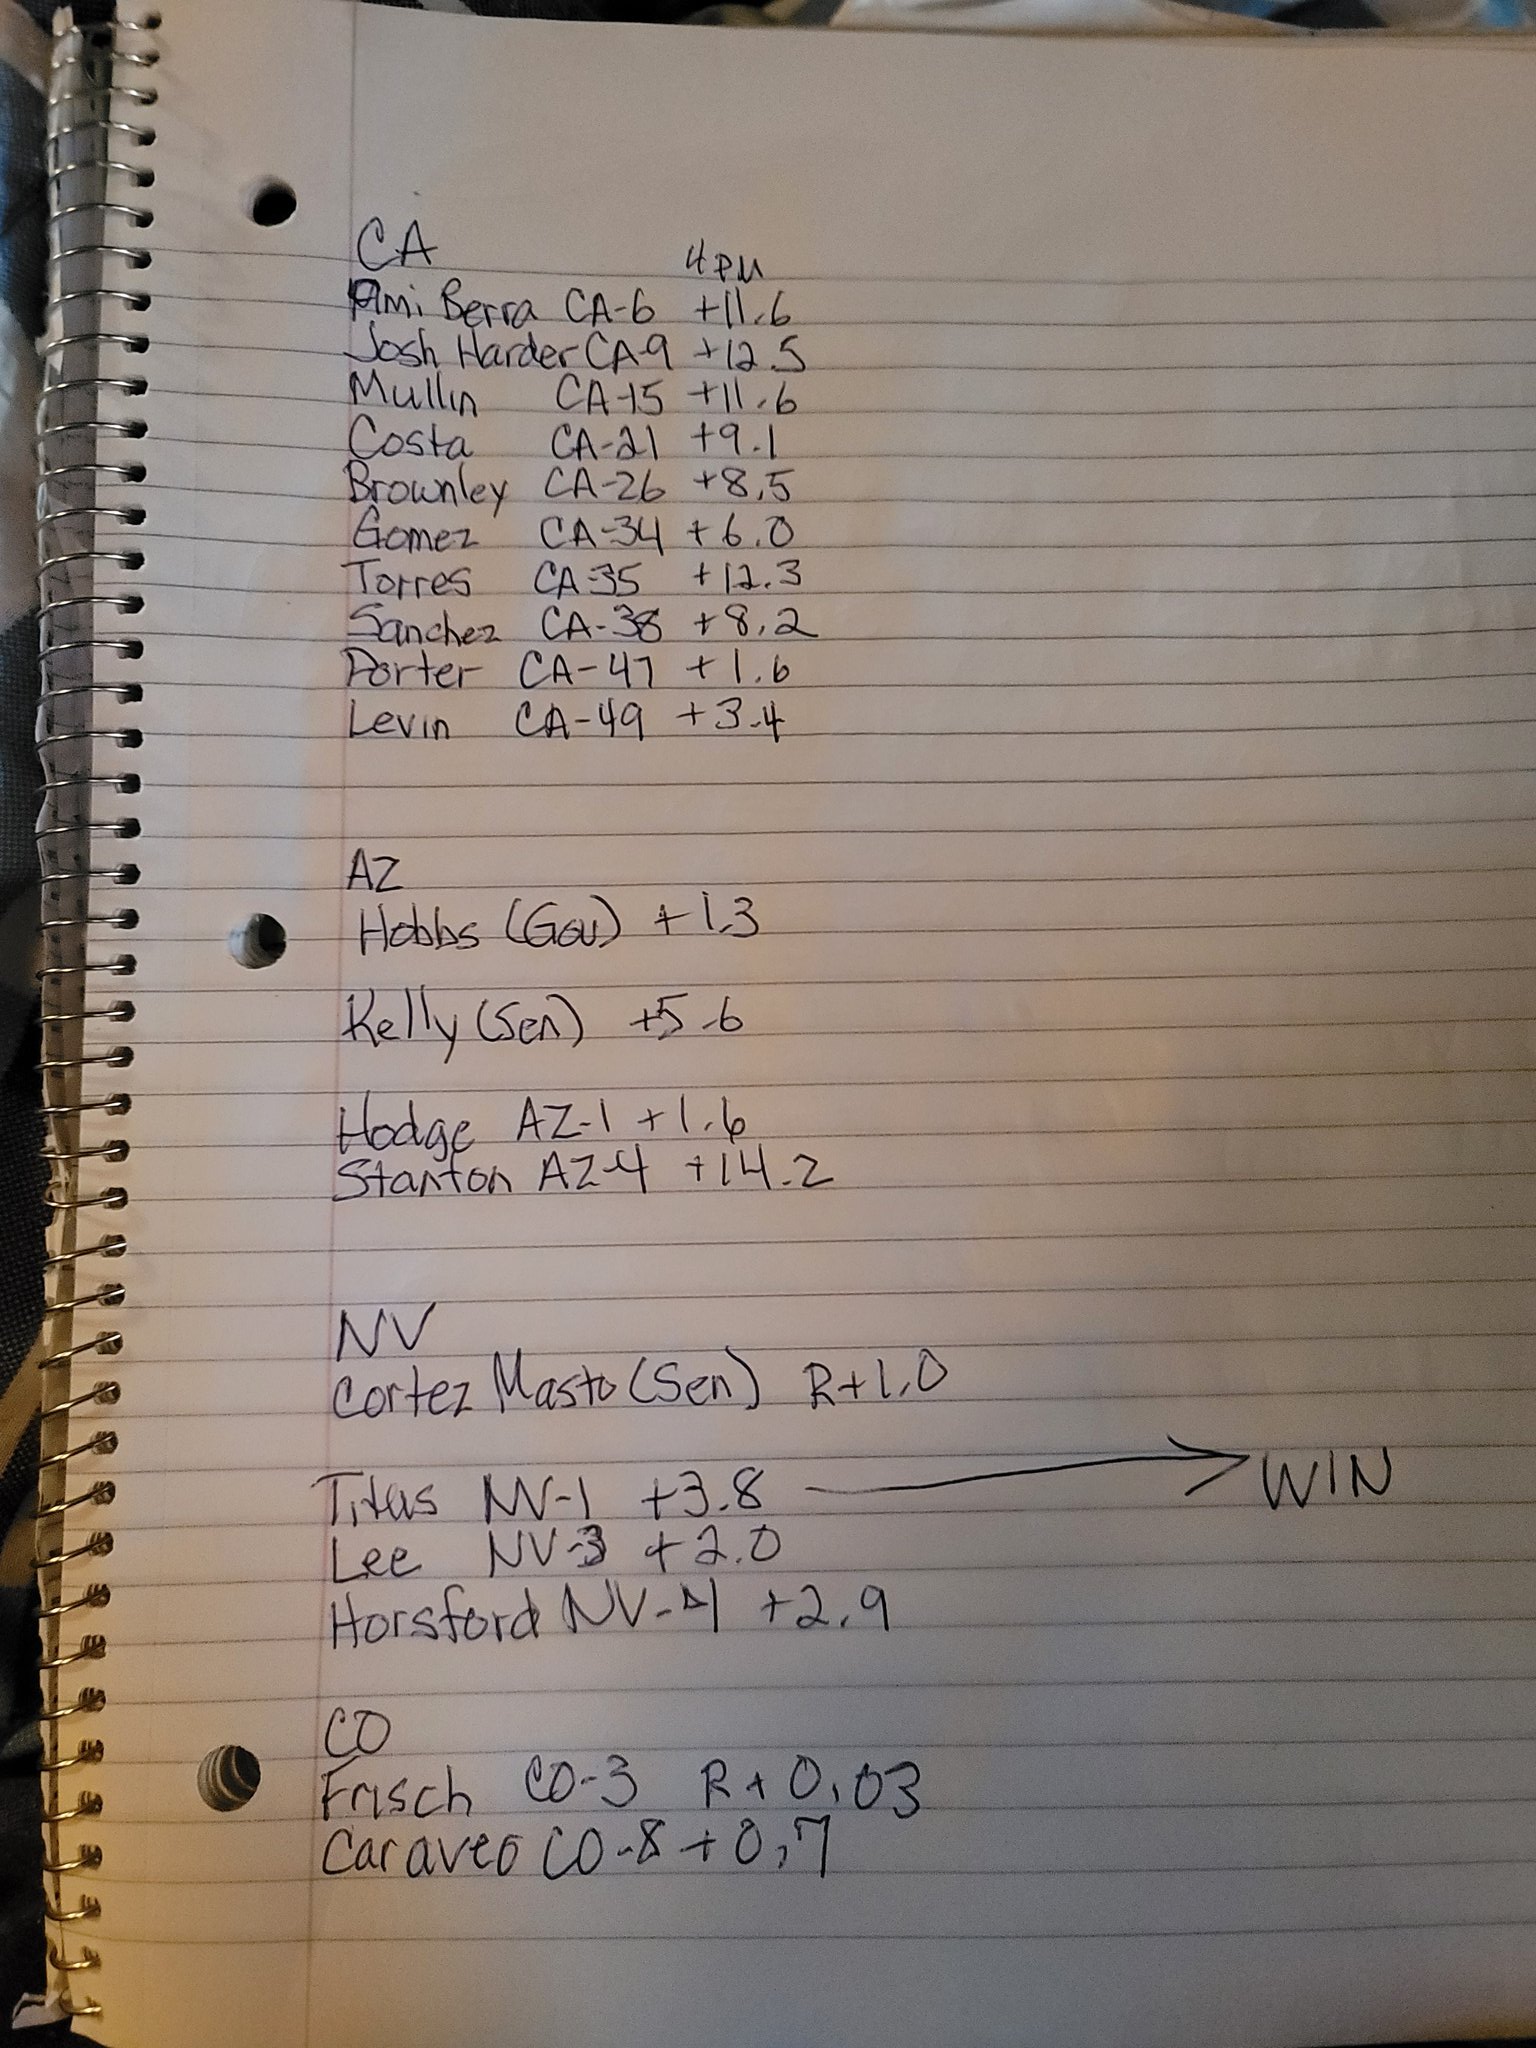 CA 4 PM
Ami Berra CA-6 +11.6
Josh Harder CA-9 +12.5
Mullin CA-15 +11.6
Costa CA-21 +9.1
Brownley CA-26 +8.5
Gomez CA-34 +6.0
Torres CA-35 +12.3
Sanchez CA-38 +8.2
Porter CA-47 +1.6
Levin CA-49 +3.4
AZ
Hobbs (Gov) +1.3
Kelly (Sen) +5.6
Hodge AZ-1 +1.6
Stanton AZ-4 +14.2
NV
Cortez Masto (Sen) R+1.0
Titus NV-1 +3.8 → WIN
Lee NV-3 +2.0
Horsford NV-4 +2.9
CO
Frisch CO-3 R+0.03
Caraveo CO-8 +0.7